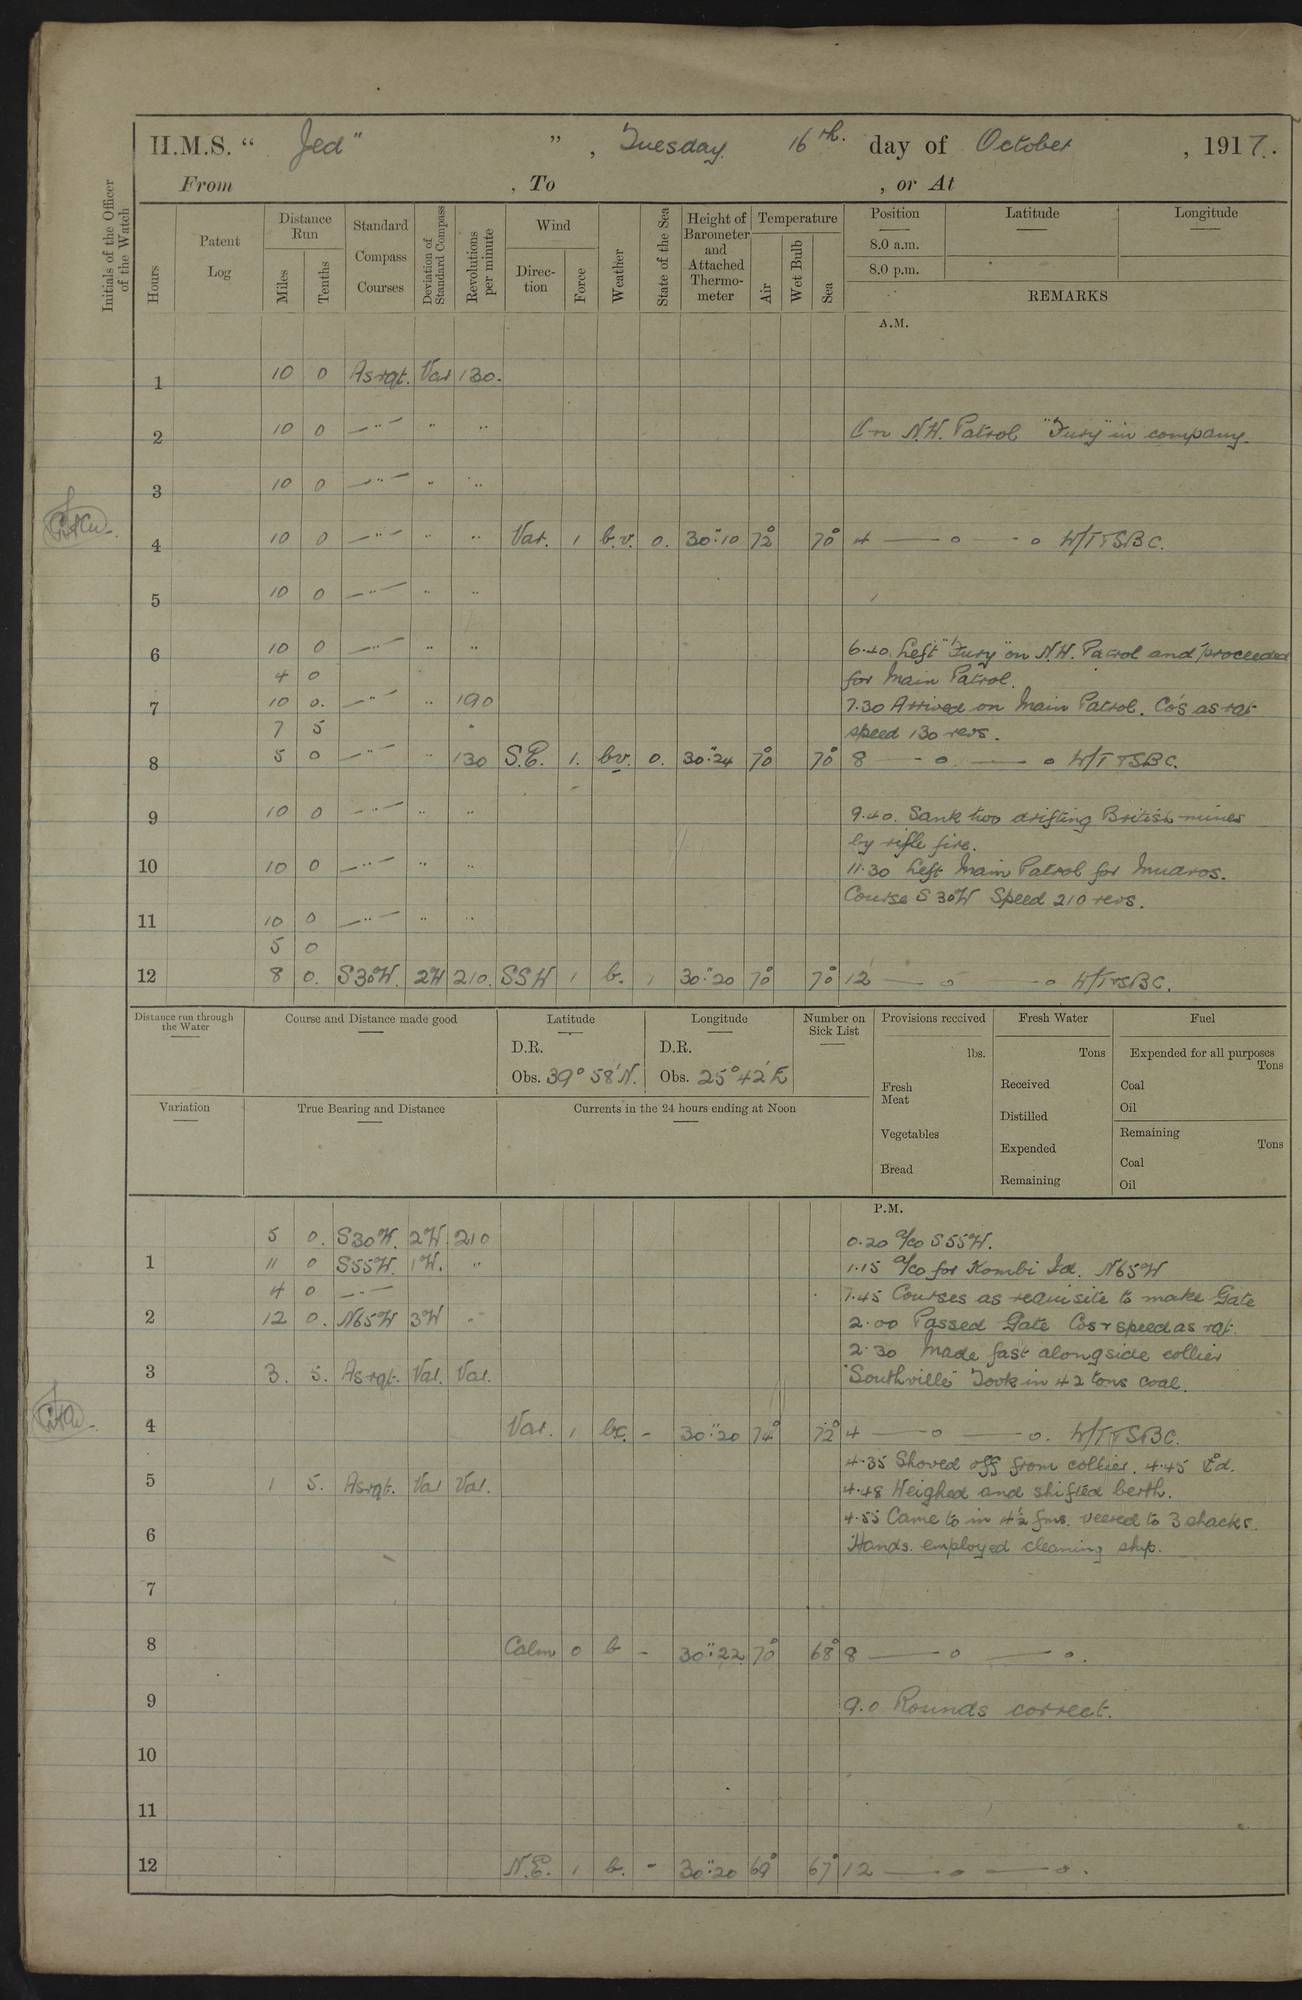 H.M.S. “ Jed” ” , Tuesday 16th. day of October , 1917.
From , To , or At
Initials of the Officer of the Watch
Hours
Patent Log
Distance Run
Miles
Tenths
Standard Compass Courses
Deviation of Standard Compass
Revolutions per minute
Wind
Direction
Force
Weather
State of the Sea
Height of Barometer and Attached Thermometer
Temperature
Air
Wet Bulb
Sea
Position Latitude Longitude
8.0 a.m.
8.0 p.m.
REMARKS
A.M.
1 10 0 As rqt. Var 130.
2 10 0 —"— " " On N.W. Patrol "Fury" in company.
3 10 0 —"— " "
4 10 0 —"— " " Var. 1 b.v. 0. 30":10 72° 70° 4 — o — o W/T TSBC.
5 10 0 —"— " "
6 10 0 —"— " " 6.40 Left "Fury" on N.W. Patrol and proceeded
4 0 for Main Patrol.
7 10 0. —"— " 190 7.30 Arrived on Main Patrol. Co's as rqt
7 5 " speed 130 revs.
8 5 0 —"— " 130 S.E. 1. bv. 0. 30":24 70° 70° 8 — o — o W/T TSBC.
9 10 0 —"— " " 9.40. Sank two drifting British mines
by rifle fire.
10 10 0 —"— " " 11.30 Left Main Patrol for Mudros.
Course S30W Speed 210 revs.
11 10 0 —"— " "
5 0
12 8 0. S30°W. 2W 210. SSW 1 b. 1 30":20 70° 70° 12 — o — o W/T TSBC.
Distance run through the Water
Course and Distance made good
Latitude
D.R.
Obs. 39° 58'N.
Longitude
D.R.
Obs. 25° 42'E
Number on Sick List
Provisions received
lbs.
Fresh Meat
Vegetables
Bread
Fresh Water
Tons
Received
Distilled
Expended
Remaining
Fuel
Expended for all purposes
Tons
Coal
Oil
Remaining
Tons
Coal
Oil
Variation
True Bearing and Distance
Currents in the 24 hours ending at Noon
P.M.
5 0. S30°W. 2°W. 210 0.20 a/co S55°W.
1 11 0 S55°W. 1°W. " 1.15 a/co for Kombi Id. N65°W
4 0 —"— 1.45 Courses as requisite to make Gate
2 12 0. N65°W 3°W " 2.00 Passed Gate Cos & speed as rqt.
2.30 Made fast alongside collier
3 3. 5. As rqt. Var. Var. "Southville" Took in 42 tons coal.
4 Var. 1 bc. - 30":20 74° 72° 4 — o — o. W/T TSBC.
4.35 Shoved off from collier. 4.45 Å'd.
5 1 5. As rqt. Var Var. 4.48 Weighed and shifted berth.
4.55 Came to in 4½ fms. veered to 3 shacks.
6 Hands employed cleaning ship.
7
8 Calm 0 b - 30":22 70° 68° 8 — o — o.
9 9.0 Rounds correct.
10
11
12 N.E. 1 b. - 30":20 69° 67° 12 — o — o.